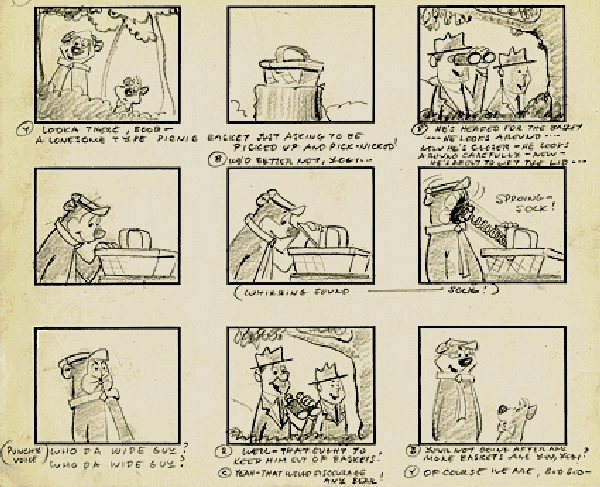 Y LOOKA THERE, BOOB—
A LONESOME TYPE PICNIC BASKET JUST ASKING TO BE
PICKED UP AND PICK-NICKED!
B WE'D BETTER NOT, YOGI---
R HE'S HEADED FOR THE BASKET
--- HE LOOKS AROUND ---
NOW HE'S CLOSER — HE LOOKS
AROUND CAREFULLY — NOW —
HE'S ABOUT TO LIFT THE LID ---
SPROING—
SOCK!
(WHIRRING SOUND SOCK!)
(PUNCHY VOICE) WHO DA WIDE GUY,
WHO DA WIDE GUY?
R WELL — THAT OUGHT TO
KEEP HIM OUT OF BASKETS.
C YEAH — THAT WOULD DISCOURAGE
ANY BEAR
B YOU'LL NOT BE AFTER ANY
MORE BASKETS ARE YOU, YOGI?
Y OF COURSE WE ARE, BOO BOO—